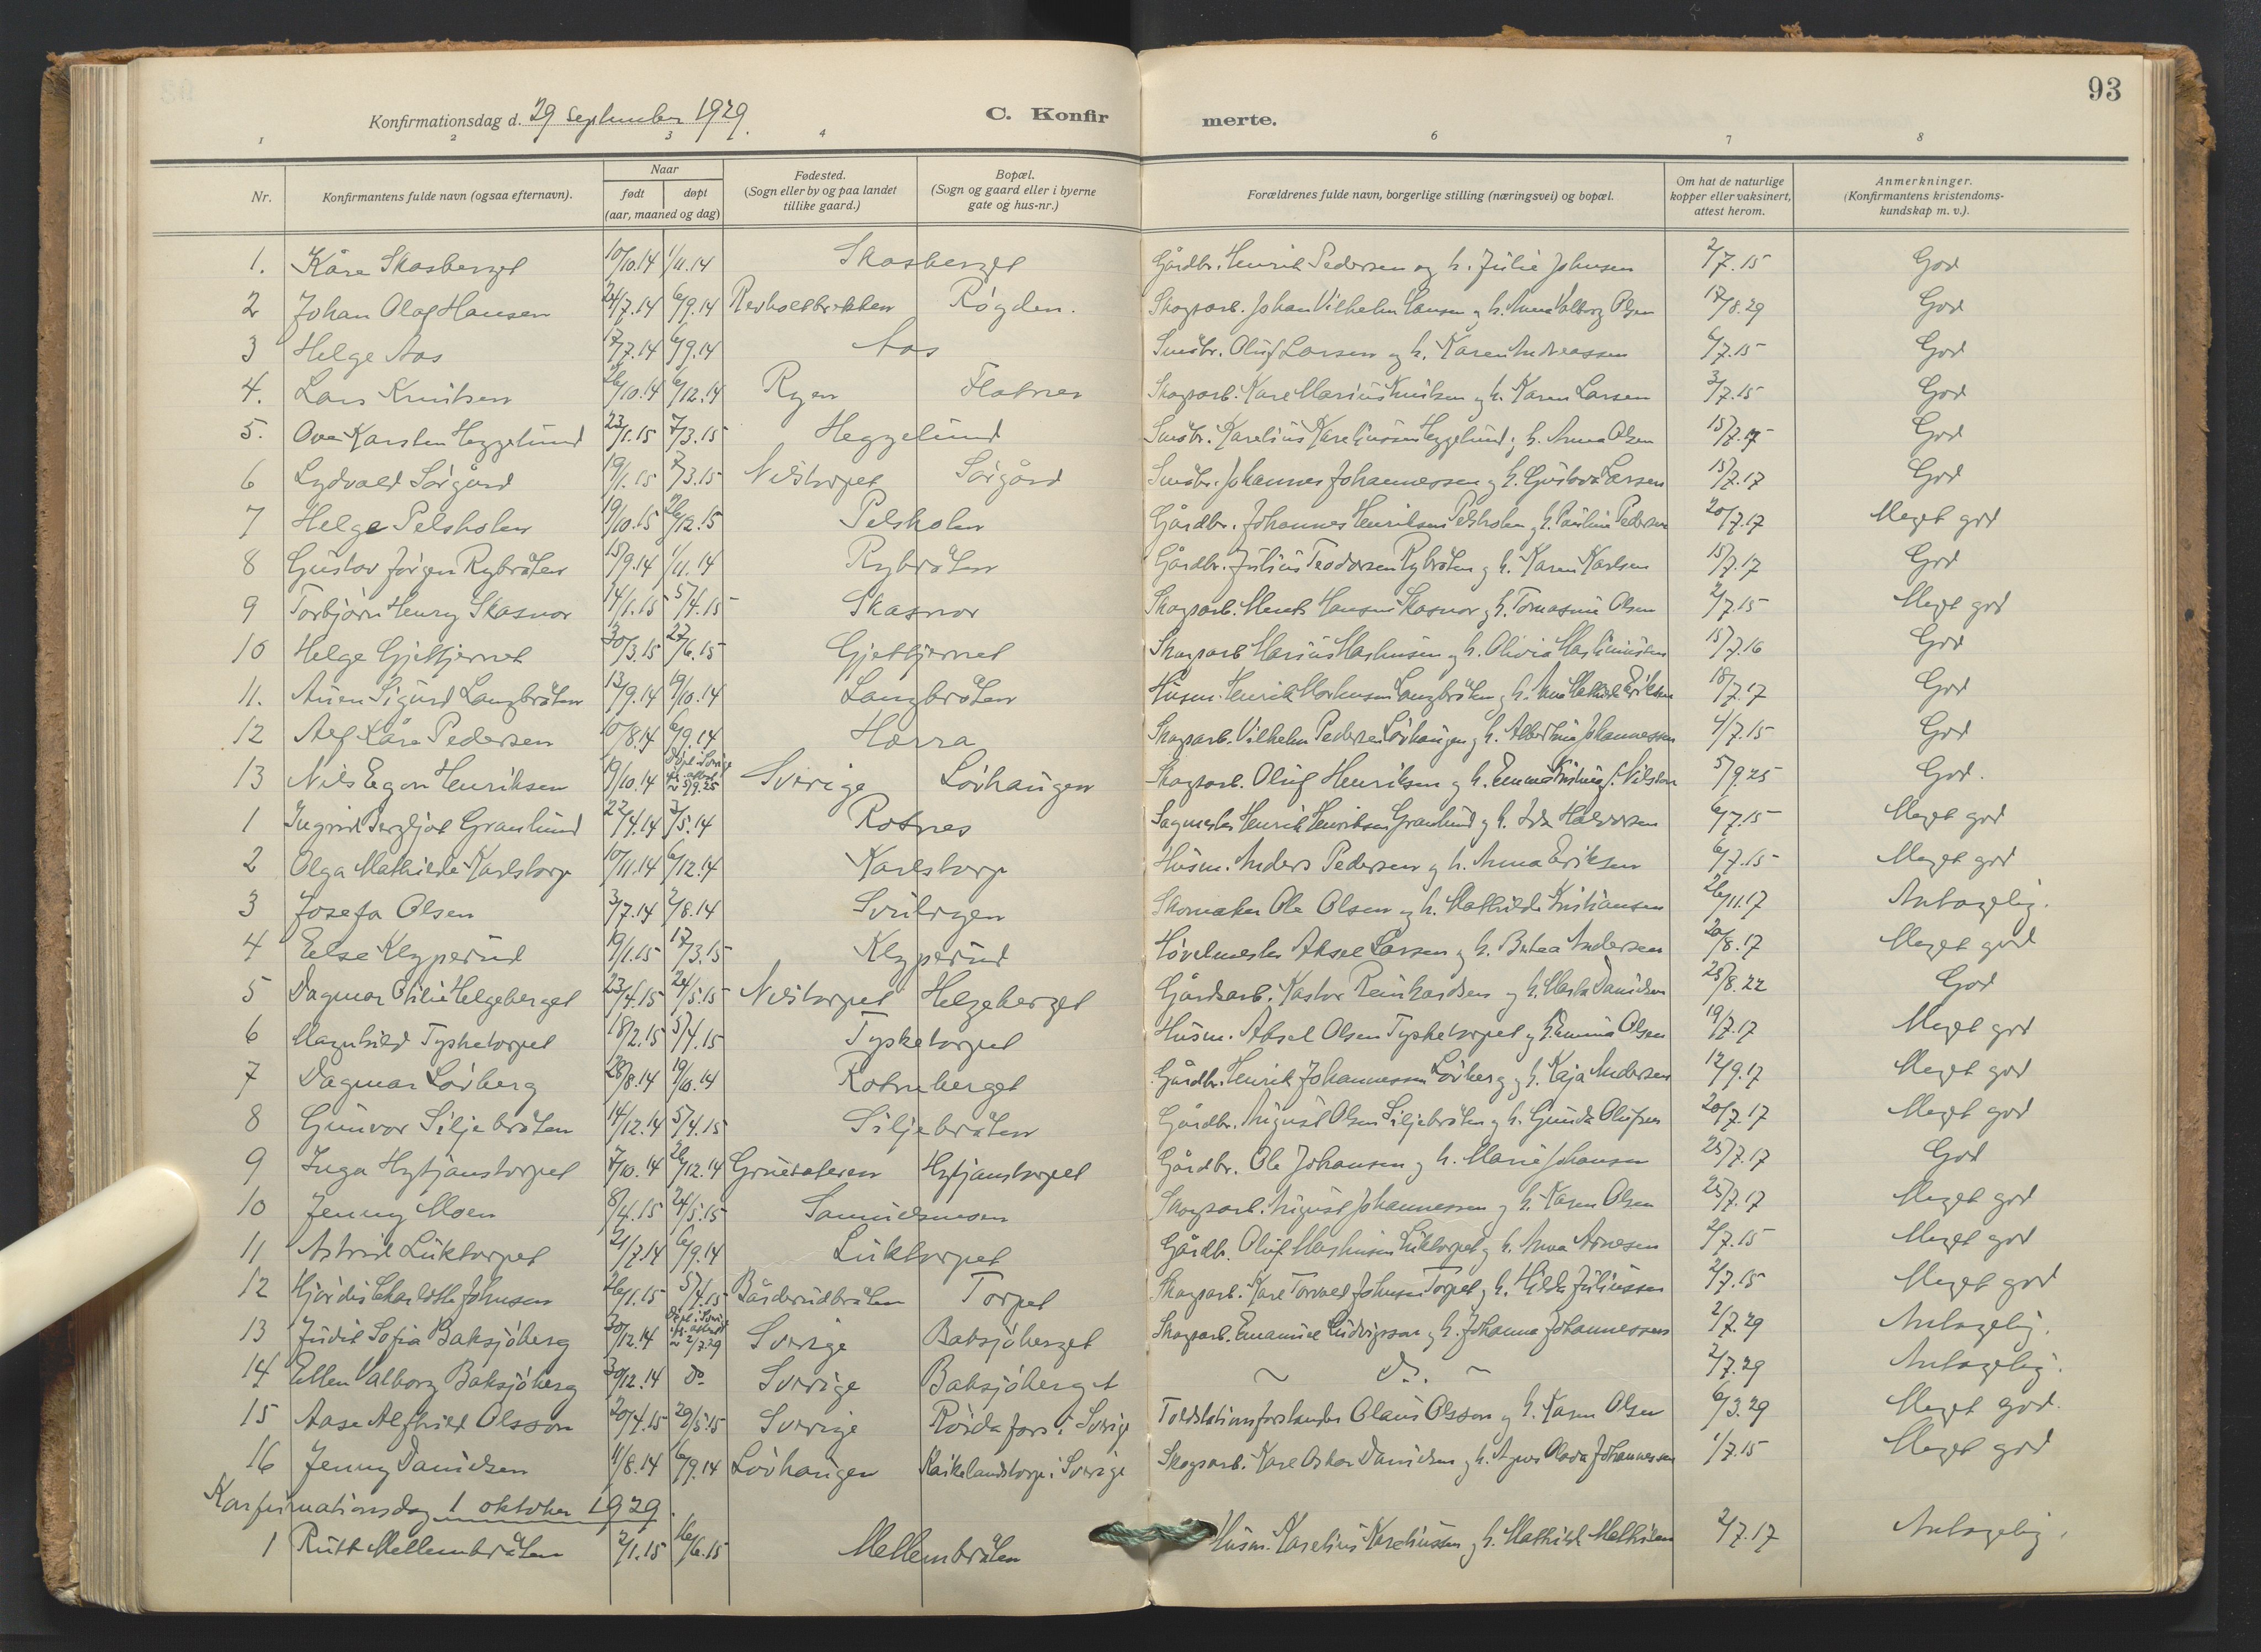 93
Konfirmationsdag d. 29 september 1929.
C. Konfir
merte.
1 2 3 4 6 7 8
Nr.
Konfirmantens fulde navn (ogsaa efternavn).
Naar
født døpt
(aar, maaned og dag)
Fødested.
(Sogn eller by og paa landet
tillike gaard.)
Bopæl.
(Sogn og gaard eller i byerne
gate og hus-nr.)
Forældrenes fulde navn, borgerlige stilling (næringsvei) og bopæl.
Om hat de naturlige
kopper eller vaksinert,
attest herom.
Anmerkninger.
(Konfirmantens kristendoms-
kundskap m. v.).
1. Kåre Skasberget 10/10.14 1/11.14 Skasberget Gårdbr. Henrik Pedersen og h. Julie Johnsen 2/7.15 God
2 Johan Olaf Hansen 24/7.14 6/9.14 Revholtbekken Røgden. Skogsarb. Johan Vilhelm Hansen og h. Anna Valborg Olsen 17/8.29 God
3 Helge Aas 17/7.14 6/9.14 Aas Småbr. Oluf Larsen og h. Karen Andreassen 6/7.15 God
4. Lars Knutsen 26/10.14 6/12.14 Ryen Flatner Skogsarb. Kare Marius Knutsen og h. Karen Larsen 3/7.15 God
5. Ove Karsten Heggelund 23/1.15 7/3.15 Heggelund Småbr. Karelius Kareliussen Heggelund og h. Anna Olsen 15/7.17 God
6 Lydvald Sørgård 19/1.15 7/3.15 Nilstorpet Sørgård Småbr. Johannes Johannessen og h. Gustava Larsen 15/7.17 God
7 Helge Pelsholen 19/10.15 26/12.15 Pelsholen Gårdbr. Johannes Henriksen Pelsholen og h. Pauline Pedersen 20/7.17 Meget god
8 Gustav Jørgen Rybråten 15/9.14 1/11.14 Rybråten Gårdbr. Julius Teodorsen Rybråten og h. Karen Karlsen 15/7.17 God
9 Torbjørn Henry Skasnor 14/1.15 5/4.15 Skasnor Skogsarb. Hansen Skasnor og h. Tomasine Olsen 2/7.15 Meget god
10 Helge Gjetkjernet 30/3.15 27/6.15 Gjetkjernet Skogsarb Marius Mathisen og h. Olivia 15/7.16 God
11. Sigurd Langbråten 13/9.14 19/10.14 Langbråten Husm. Henrik Langbråten og h. Anna Mathilde Eriksen 18/7.17 God
12 Alf Kåre Pedersen 10/8.14 6/9.14 Horra Skogsarb. Vilhelm Pedersen Løvhaugen og h. Albertine Johannessen 4/7.15 God
13 Nils Egon Henriksen 19/10.14 Døpt i Sverige flg. attest av 5/9.25 Sverige Løvhaugen Skogsarb. Oluf Henriksen og h. Emma Kristine f. Nilsson 5/9.25 God.
1 Ingrid Bergljot Granlund 22/4.14 3/5.14 Rotnes Sagmester Henrik Henriksen Granlund og h. Ida Halvorsen 6/7.15 Meget god
2 Olga Mathilde Karlstorp 10/11.14 6/12.14 Karlstorp Husm. Anders Pedersen og h. Anna Eriksen 6/7.15 Meget god
3 Josefa Olsen 3/7.14 2/8.14 Skomaker Ole Olsen og h. Mathilde Kristiansen 26/11.17 Antagelig.
4 Else Klyperud 19/1.15 17/3.15 Klyperud Høvelmester Aksel Larsen og h. Betea Andersen 20/8.17 Meget god
5 Dagmar Otilie Helgeberget 23/4.15 24/5.15 Nilstorpet Helgeberget Gårdsarb. Kastor Reinhardsen og h. Marta Danielsen 28/8.22 God
6 Magnhild Tysketorpet 18/2.15 5/4.15 Tysketorpet Husm. Aksel Olsen Tysketorpet og h. Emma Olsen 19/7.17 Meget god
7 Dagmar Løvberg 28/8.14 19/10.14 Rotneberget Gårdbr. Henrik Johannessen Løvberg og h. Kaja Andersen 12/9.17 Meget god
8 Gunvor Siljebråten 14/12.14 5/4.15 Siljebråten Gårdbr. August Olsen Siljebråten og h. Gunda Olufsen 20/7.17 Meget god
9 Inga Hytjanstorpet 7/10.14 26/12.14 Gruesæteren Hytjanstorpet Gårdbr. Ole Johansen og h. Marie Johansen 25/7.17 God
10 Jenny Moen 8/4.15 24/5.15 Samuelsmoen Skogsarb. August Johannessen og h. Karen Olsen 25/7.17 Meget god
11 Astrid Luktorpet 21/7.14 6/9.14 Luktorpet Gårdb. Oluf Mathisen Luktorpet og h. Anna Arnesen 2/7.15 Meget god
12 Hjørdis Charlotte Johnsen 26/1.15 5/4.15 Bårderudbråten Torpet Skogsarb. Kare Torvald Johnsen Torpet og h. Hilda Juliussen 2/7.15 Meget god
13 Judit Sofia Baksjøberg 30/12.14 Døpt i Sverige flg. attest av 2/7.29 Sverige Baksjøberget Skogsarb. Emanuel Ludvigsson og h. Johanna Johannessen 2/7.29 Antagelig.
14 Ellen Valborg Baksjøberg 30/12.14 do Sverige Baksjøberget ~ do. ~ 2/7.29 Antagelig.
15 Aase Alfhild Olsson 20/4.15 29/5.15 Sverige Røjdåfors i Sverige Toldstationsforstander Olaus Olsson og h. Karen Olsen 6/3.29 Meget god.
16 Jenny Danielsen 11/8.14 6/9.14 Løvhaugen Kaikelandstorp i Sverige Skogsarb. Kare Oskar Danielsen og h. Agnes Olava Johannessen 1/7.15 Meget god
Konfirmationsdag 1 oktober 1929.
1 Rutt Mellembråten 2/1.15 16/6.15 Mellembråten Husm. Karelius Kareliussen og h. Mathilde Mathisen 2/7.17 Antagelig.